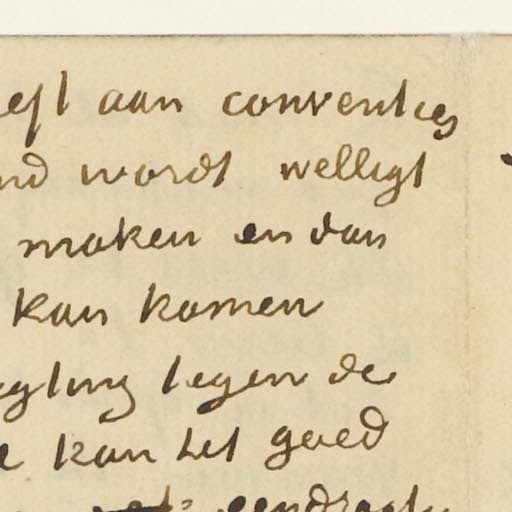 eft aan conventies
nd wordt welligt
maken en dan
kan komen
egling tegen de
e kan het goed
eendragt